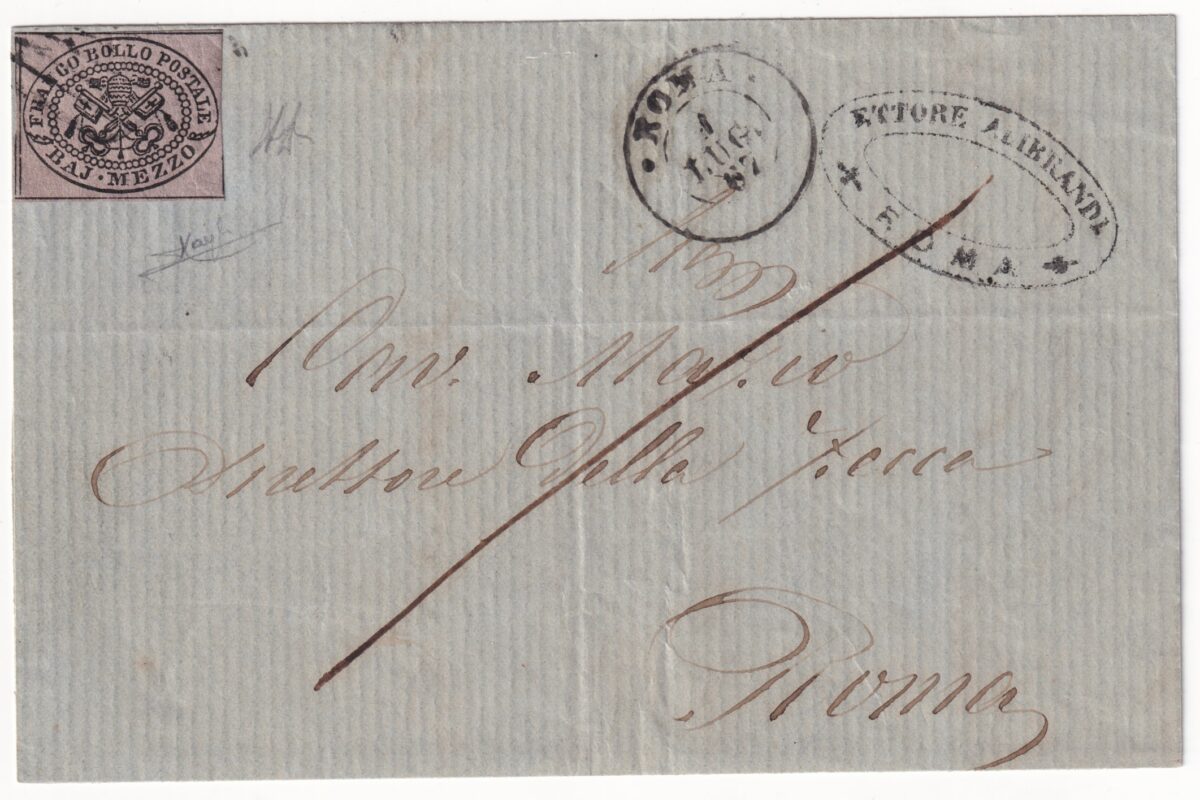 FRANCO BOLLO POSTALE
BAJ. MEZZO
ROMA
1
LUG.
67
ETTORE ALIBRANDI
ROMA
Direttore Della Zecca
Roma